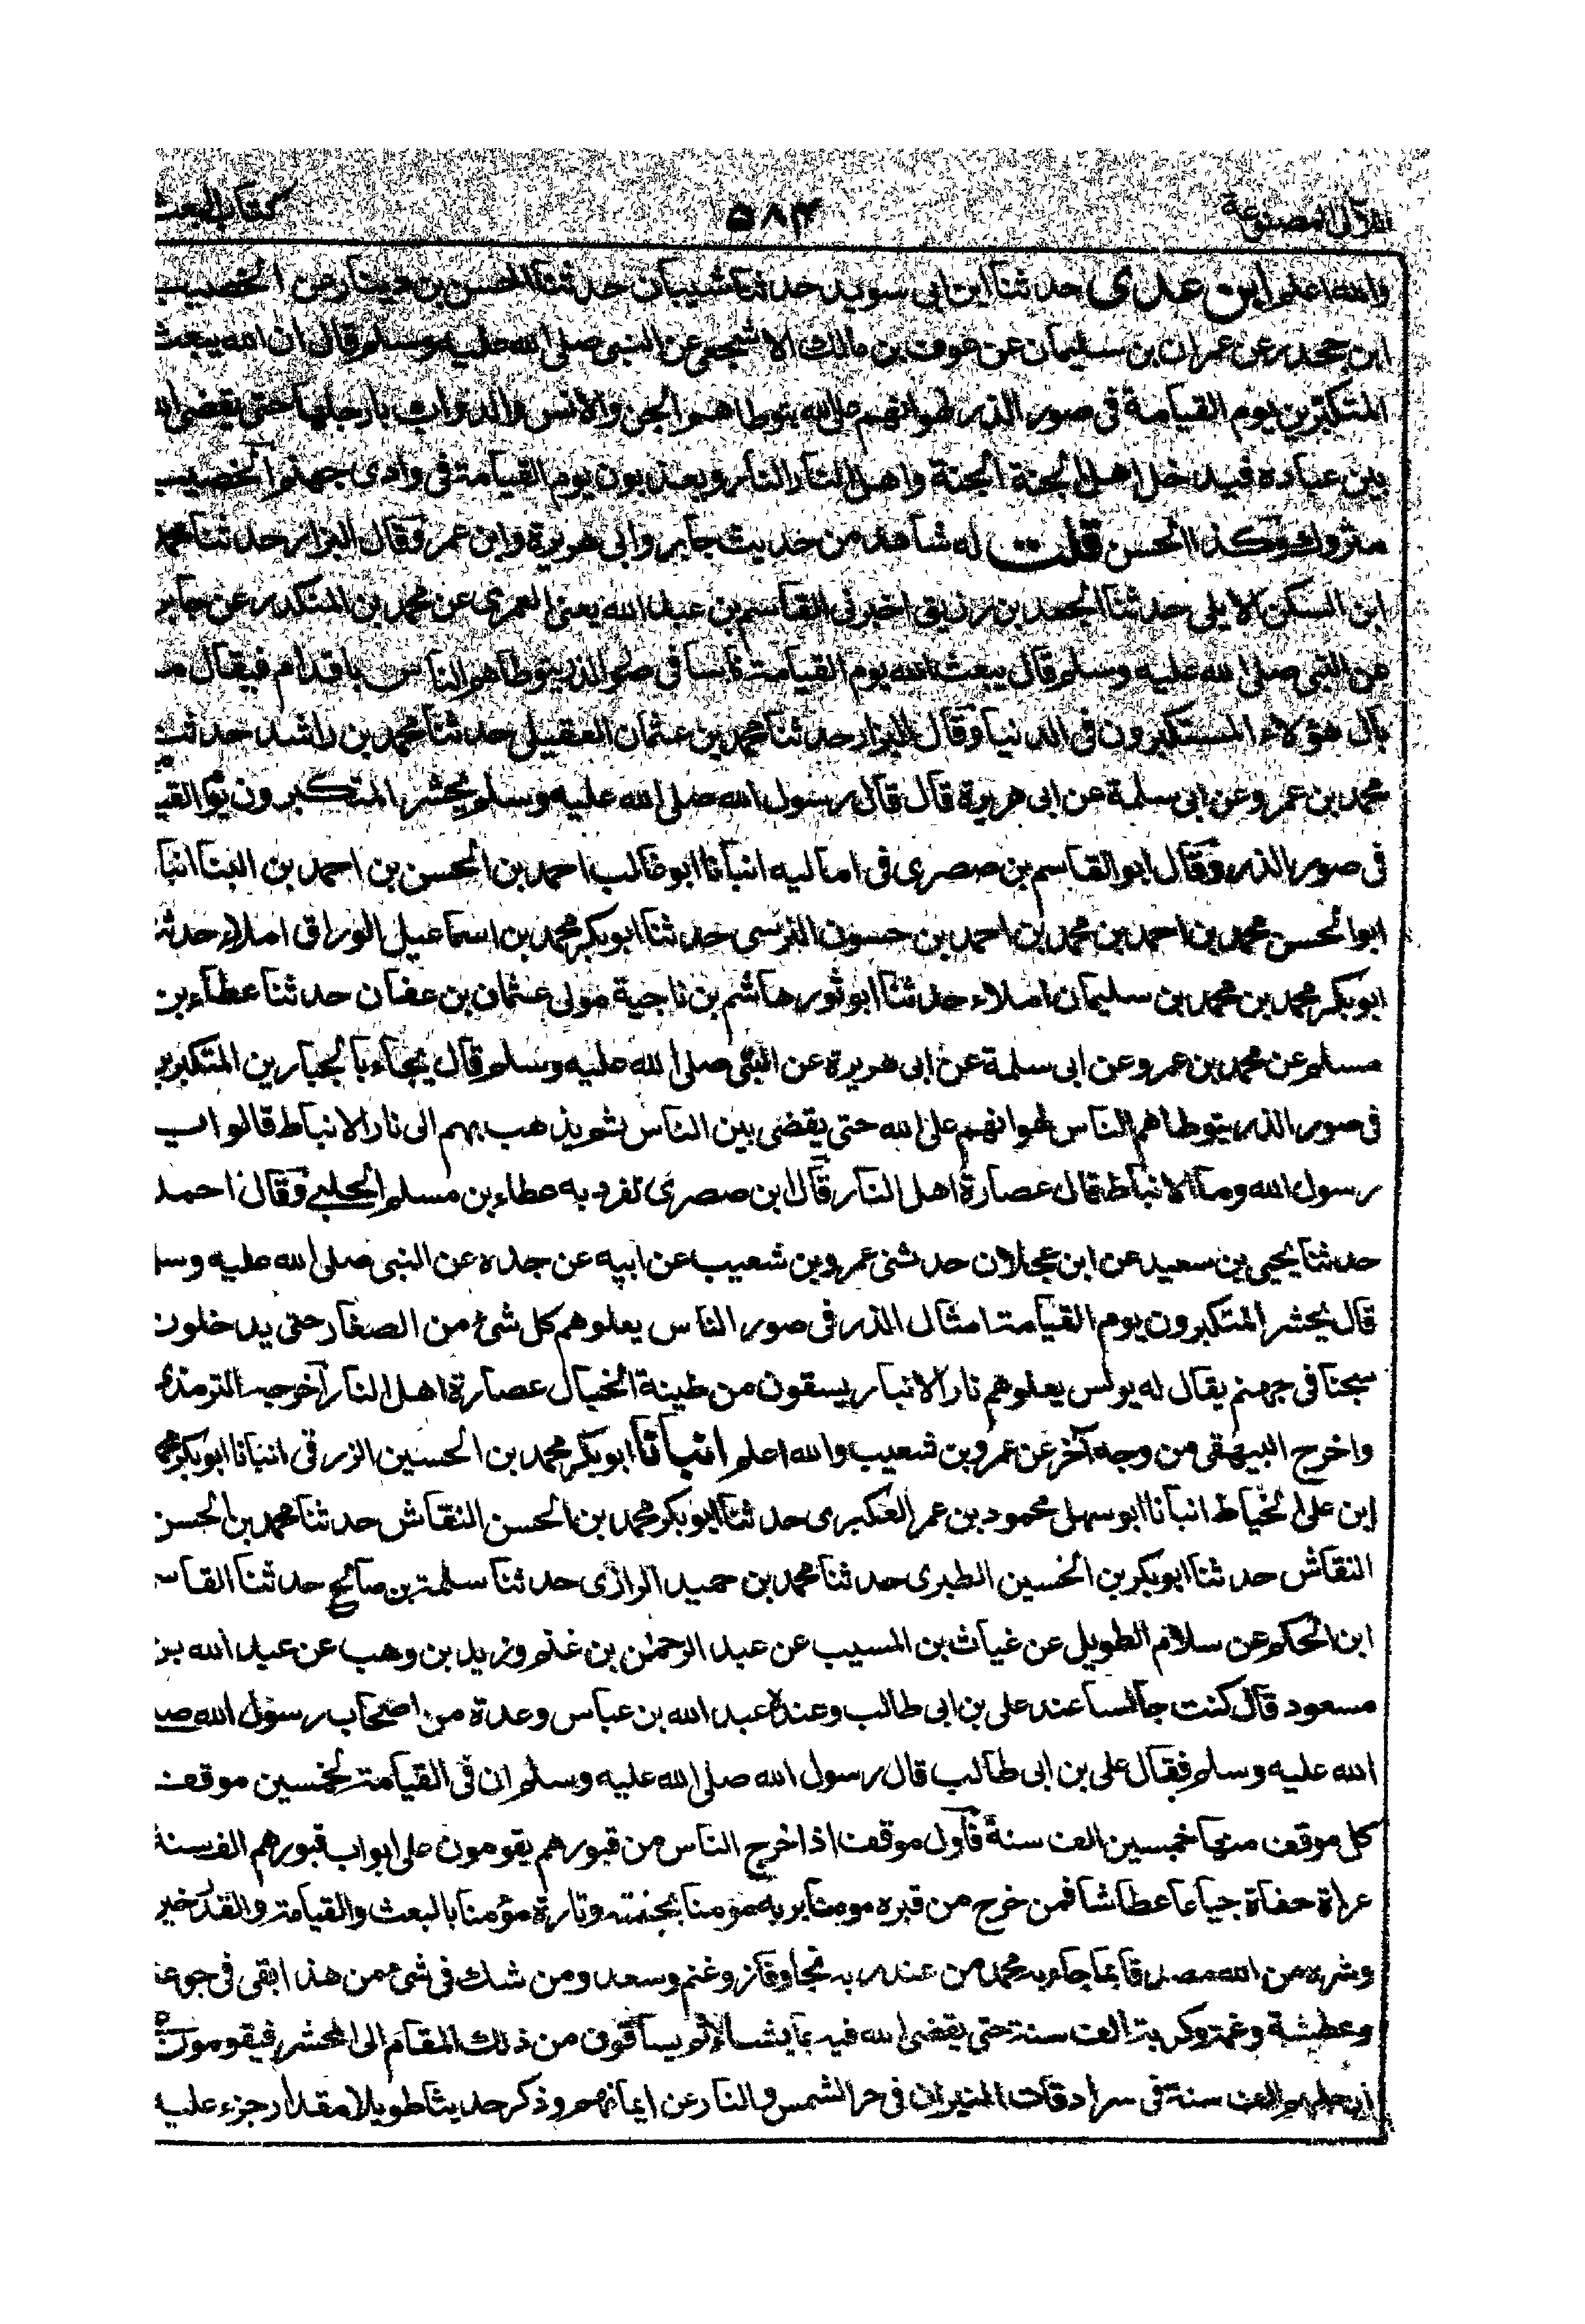 اللآلى المصنوعة ٥٨٤ كتاب البعث
والله اعلم ابن عدى حدثنا ابن ابى سويد حدثنا شيبان حدثنا الحسن بن دينار عن الخصيب
ابن جحدر عن عمران بن سليمان عن عوف بن مالك الاشجعى عن النبى صلى الله عليه وسلم قال ان الله يبعث
المتكبرين يوم القيامة فى صور الذر لهوانهم على الله يتوطاهم الجن والانس والدواب بارجلها حتى يقضى الله
بين عباده فيدخل اهل الجنة الجنة واهل النار النار ويعذبون يوم القيامة فى وادى جهنم الخصيب
متروك وكذا الحسن قلت له شاهد من حديث جابر وابى هريرة وابن عمر وقال البزار حدثنا محمد
ابن السكن الايلى حدثنا الجعد بن رزيق اخبرنى القاسم بن عبد الله يعنى العمرى عن محمد بن المنكدر عن جابر
عن النبى صلى الله عليه وسلم قال يبعث الله يوم القيامة ناسا فى صور الذر يتوطاهم الناس باقدام فيقال ما
بال هؤلاء المستكبرون فى الدنيا وقال البزار حدثنا محمد بن عثمان العقيلى حدثنا محمد بن راشد حدثنا
محمد بن عمرو عن ابى سلمة عن ابى هريرة قال قال رسول الله صلى الله عليه وسلم يحشر المتكبرون يوم القي
فى صور الذر وقال ابو القاسم بن صصرى فى اماليه انبانا ابو غالب احمد بن الحسن بن احمد بن البنا انبا
ابو الحسن محمد بن احمد بن محمد بن احمد بن حسون النرسى حدثنا ابو بكر محمد بن اسماعيل الوراق املاء حدثنا
ابو بكر محمد بن محمد بن سليمان املاء حدثنا ابو ثور هاشم بن ناجية مولى عثمان بن عفان حدثنا عطاء بن
مسلم عن محمد بن عمرو عن ابى سلمة عن ابى هريرة عن النبى صلى الله عليه وسلم قال يجاء بالجبارين المتكبرين
فى صور الذر يتوطاهم الناس لهوانهم على الله حتى يقضى بين الناس ثم يذهب بهم الى نار الانباط قالوا
رسول الله وما الانباط قال عصارة اهل النار قال ابن صصرى تفرد به عطاء بن مسلم الحلبى وقال احمد
حدثنا يحيى بن سعيد عن ابن عجلان حدثنى عمرو بن شعيب عن ابيه عن جده عن النبى صلى الله عليه وسل
قال يحشر المتكبرون يوم القيامة امثال الذر فى صور الناس يعلوهم كل شئ من الصغار حتى يدخلون
سجنا فى جهنم يقال له بولس يعلوهم نار الانيار يسقون من طينة الخبال عصارة اهل النار اخرجه الترمذى
واخرج البيهقى من وجه آخر عن عمرو بن شعيب والله اعلم انبانا ابو بكر محمد بن الحسين الزرقى انبانا ابو بكر محمد
ابن على الخياط انبانا ابو سهل محمود بن عمر العكبرى حدثنا ابو بكر محمد بن الحسن النقاش حدثنا محمد بن الحسن
النقاش حدثنا ابو بكر بن الحسين الطبرى حدثنا محمد بن حميد الرازى حدثنا سلمة بن صالح حدثنا القاس
ابن الحكم عن سلام الطويل عن غياث بن المسيب عن عبد الرحمن بن غنم وزيد بن وهب عن عبد الله بن
مسعود قال كنت جالسا عند على بن ابى طالب وعنده عبد الله بن عباس وعدة من اصحاب رسول الله ص
الله عليه وسلم فقال على بن ابى طالب قال رسول الله صلى الله عليه وسلم ان فى القيامة لخمسين موقف
كل موقف منها خمسين الف سنة فاول موقف اذا خرج الناس من قبورهم يقومون على ابواب قبورهم الف سنة
عراة حفاة جياعا عطاشا فمن خرج من قبره مومنا بربه مومنا بجنته وناره مؤمنا بالبعث والقيامة والقدر خير
وشره من الله مصدقا بما جاء به محمد من عند ربه نجا وفاز وغنم وسعد ومن شك فى شئ من هذا ابقى فى جوعه
وعطشة وغمه وكربته الف سنة حتى يقضى الله فيه بما يشاء ثم يساقون من ذلك المقام الى المحشر فيقومون
ارجلهم الف سنة فى سرادقات النيران فى حر الشمس والنار عن ايمانهم وذكر حديثا طويلا مقدار جزء عليه